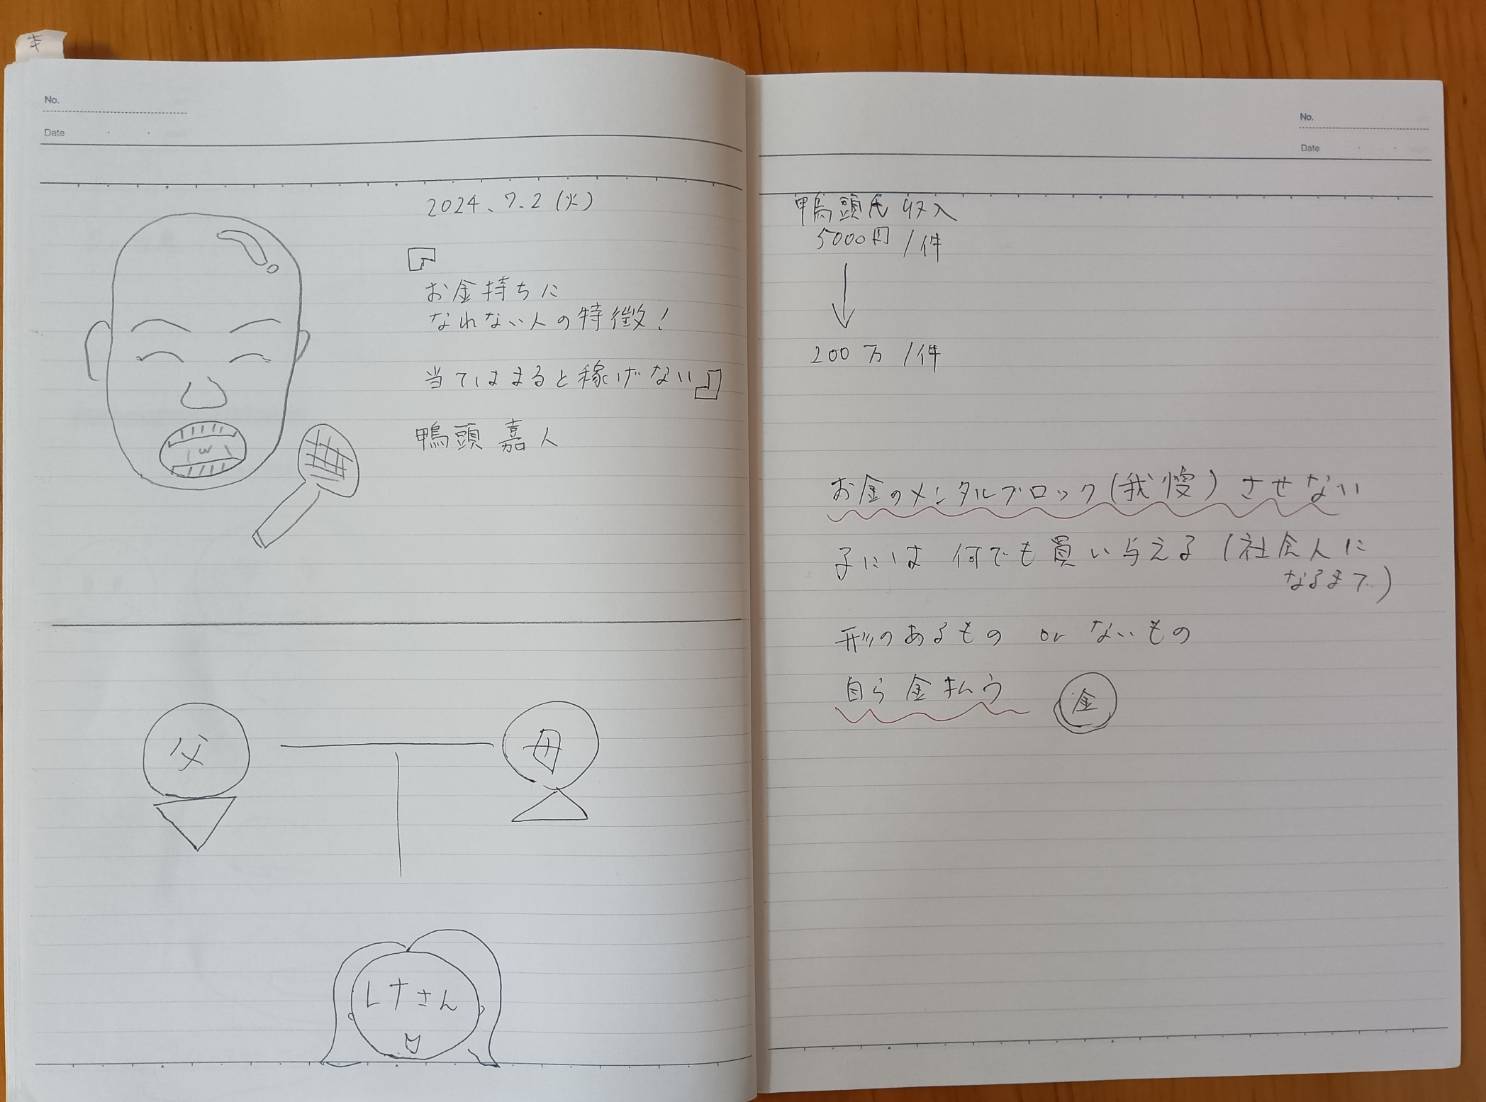 キ
No.
Date
2024.7.2(火)
『
お金持ちに
なれない人の特徴!
当てはまると稼げない』
鴨頭 嘉人
父
母
レナさん
No.
Date
鴨頭氏収入
5000円/件
200万/件
お金のメンタルブロック(我慢)させない
子には何でも買い与える(社会人に
なるまで)
形のあるもの or ないもの
自ら金払う
金